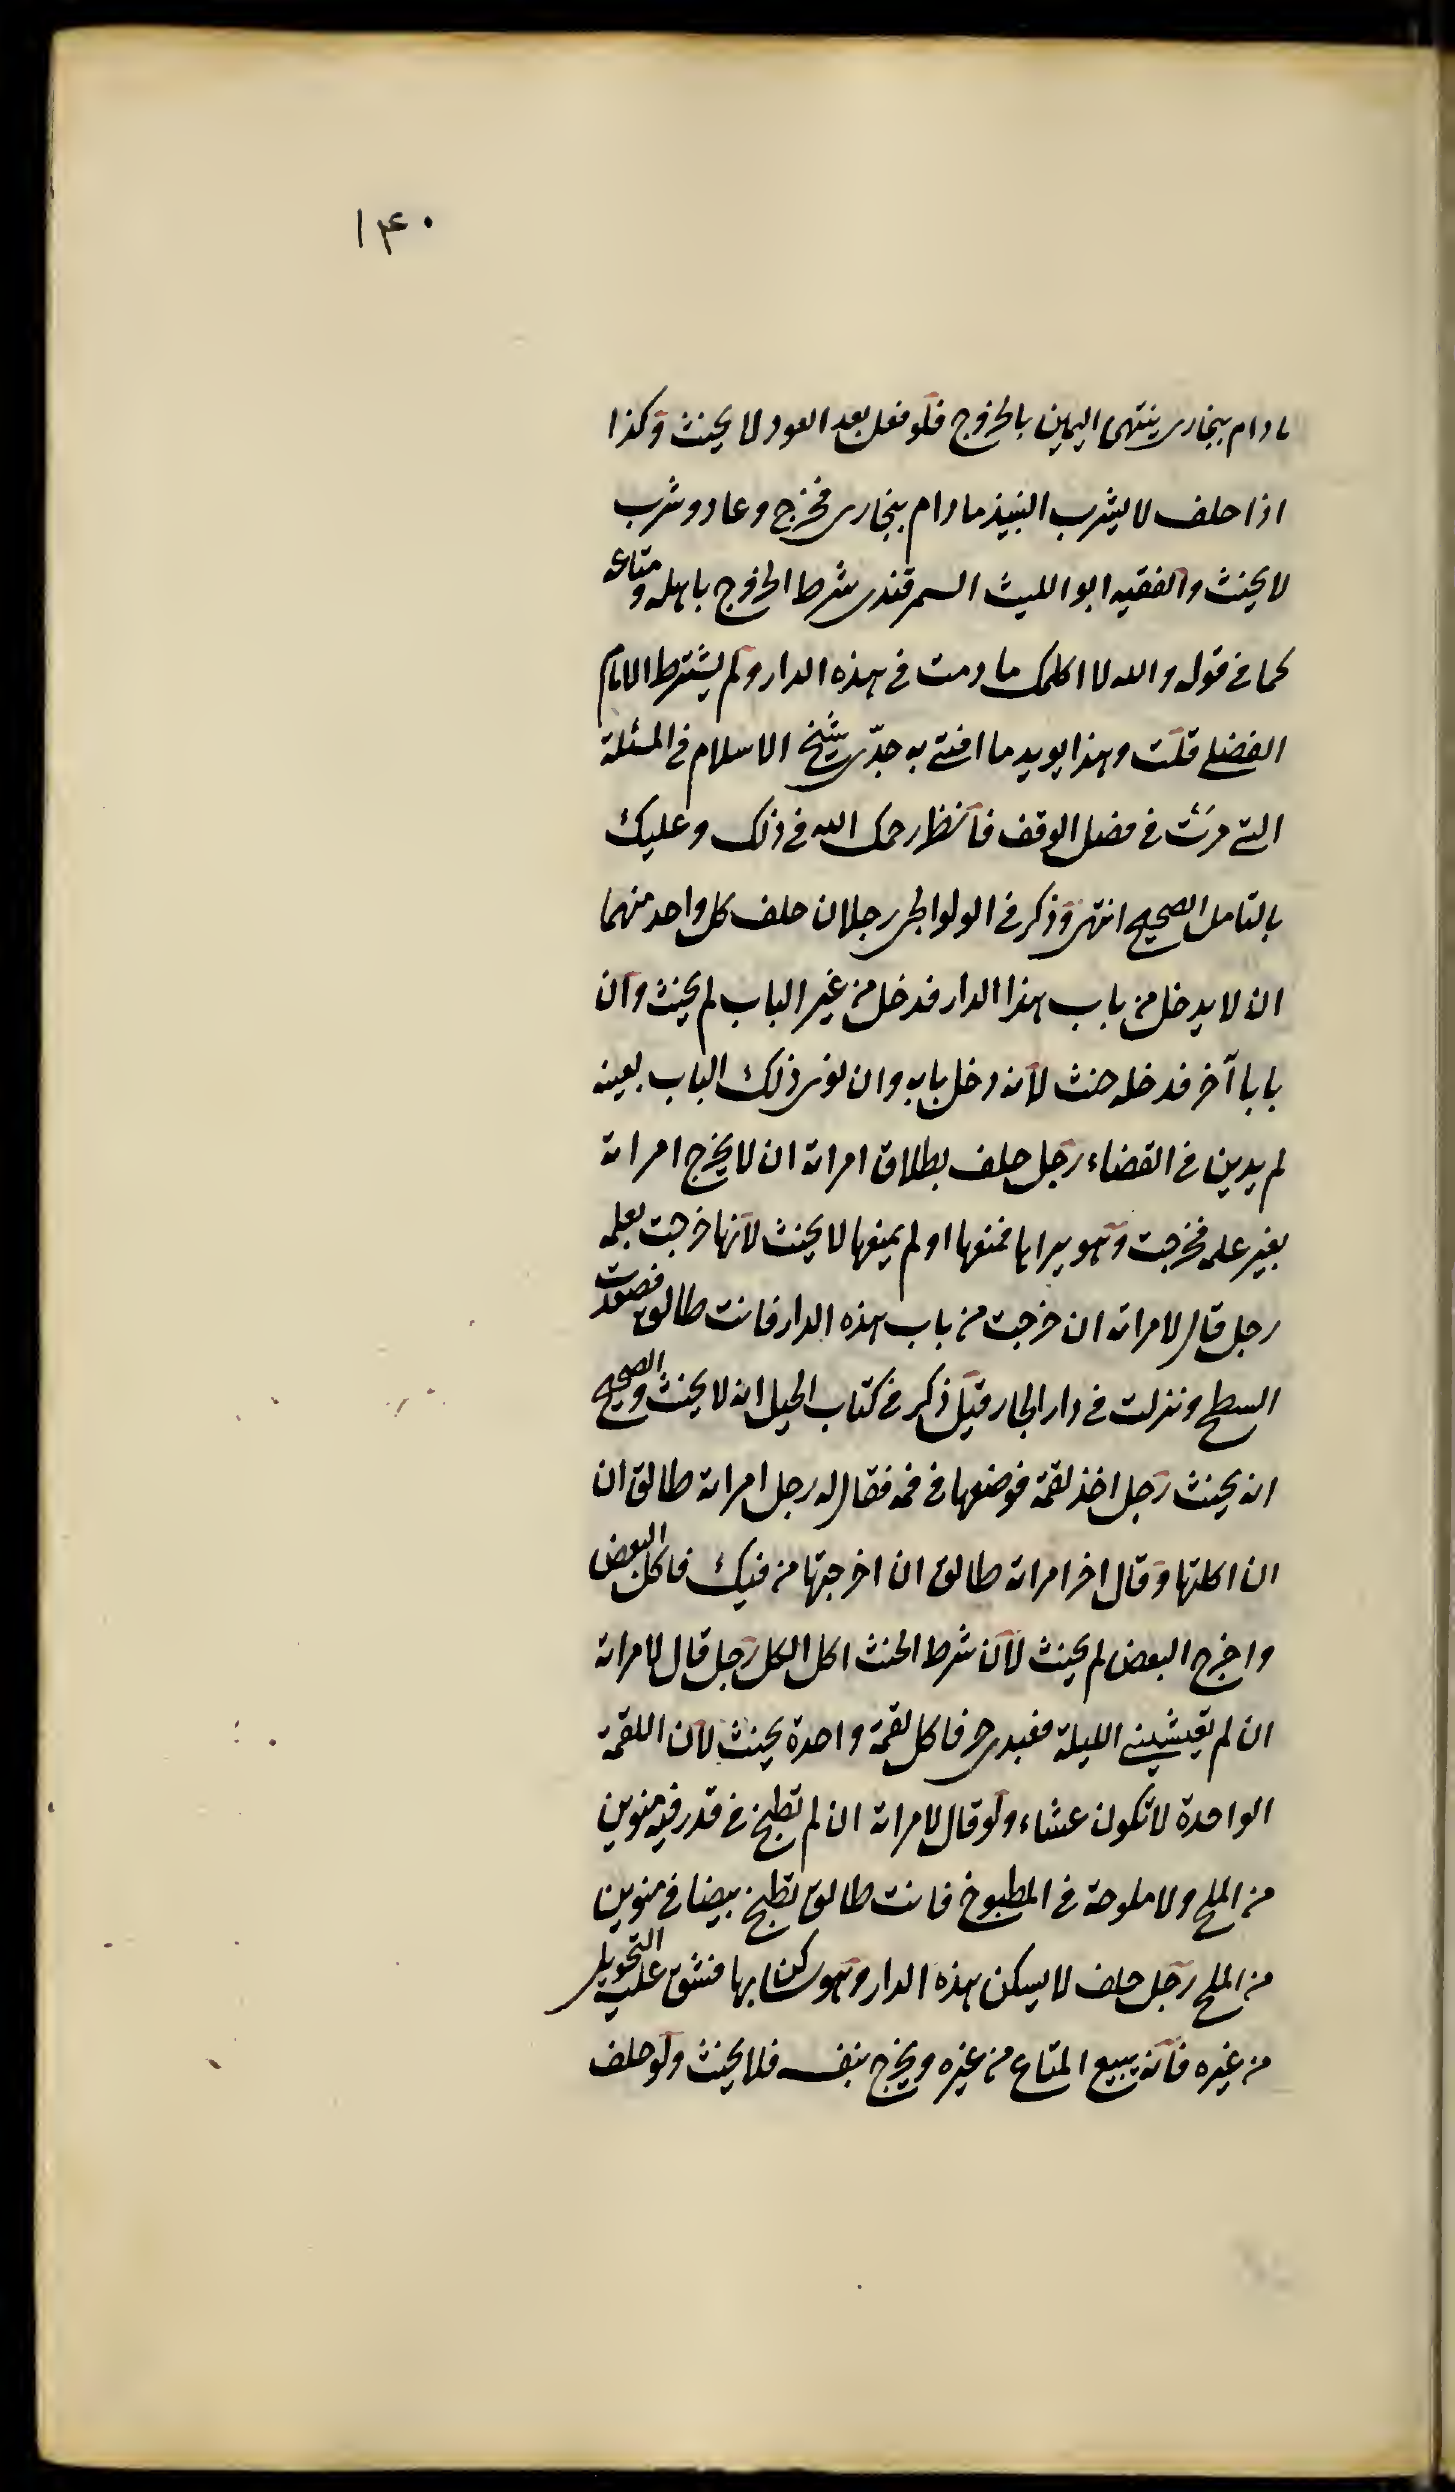 ١۴٠
مادام ببخارى ينتهى اليمين بالخروج فلو فعل بعد العود لا يحنث وكذا
اذا حلف لا يشرب النبيذ مادام ببخارى فخرج وعاد وشرب
لا يحنث والفقيه ابو الليث السمرقندى شرط الخروج باهله ومتاعه
كما فى قوله والله لا اكلمك ما دمت فى هذه الدار ولم يشترط الامام
الفضلى قلت وهذا يويد ما افتى به جدّى شيخ الاسلام فى المسئلة
التى مرّت فى فصل الوقف فانظر رحمك الله فى ذلك وعليك
بالتامل الصحيح انتهى وذكر فى الولوالجى رجلان حلف كل واحد منهما
ان لا يدخل من باب هذا الدار فدخل من غير الباب لم يحنث وان
بابا آخر فدخله حنث لانه دخل بابه وان نوى ذلك الباب بعينه
لم يدين فى القضاء رجل حلف بطلاق امراته ان لا يخرج امراته
بغير علمه فخرجت وهو يراها فمنعها او لم يمنعها لا يحنث لانها خرجت بعلمه
رجل قال لامراته ان خرجت من باب هذه الدار فانت طالق فصعدت
السطح ونزلت فى دار الجار قيل ذكر فى كتاب الحيل انه لا يحنث والصحيح
انه يحنث رجل اخذ لقمة فوضعها فى فمه فقال له رجل امراته طالق ان
ان اكلتها وقال اخر امراته طالق ان اخرجتها من فيك فاكل البعض
واخرج البعض لم يحنث لان شرط الحنث اكل الكل رجل قال لامراته
ان لم تعشينى الليلة فعبدى حر فاكل لقمة واحدة يحنث لان اللقمة
الواحدة لا تكون عشاء ولو قال لامراته ان لم تطبخ فى قدر فيه منوين
من الملح ولا ملوحة فى المطبوخ فانت طالق تطبخ بيضا فى منوين
من الملح رجل حلف لا يسكن هذه الدار وهو ساكن بها فشق عليه التحويل
من غيره فانه يبيع المتاع من غيره ويخرج بنفسه فلا يحنث ولو حلف